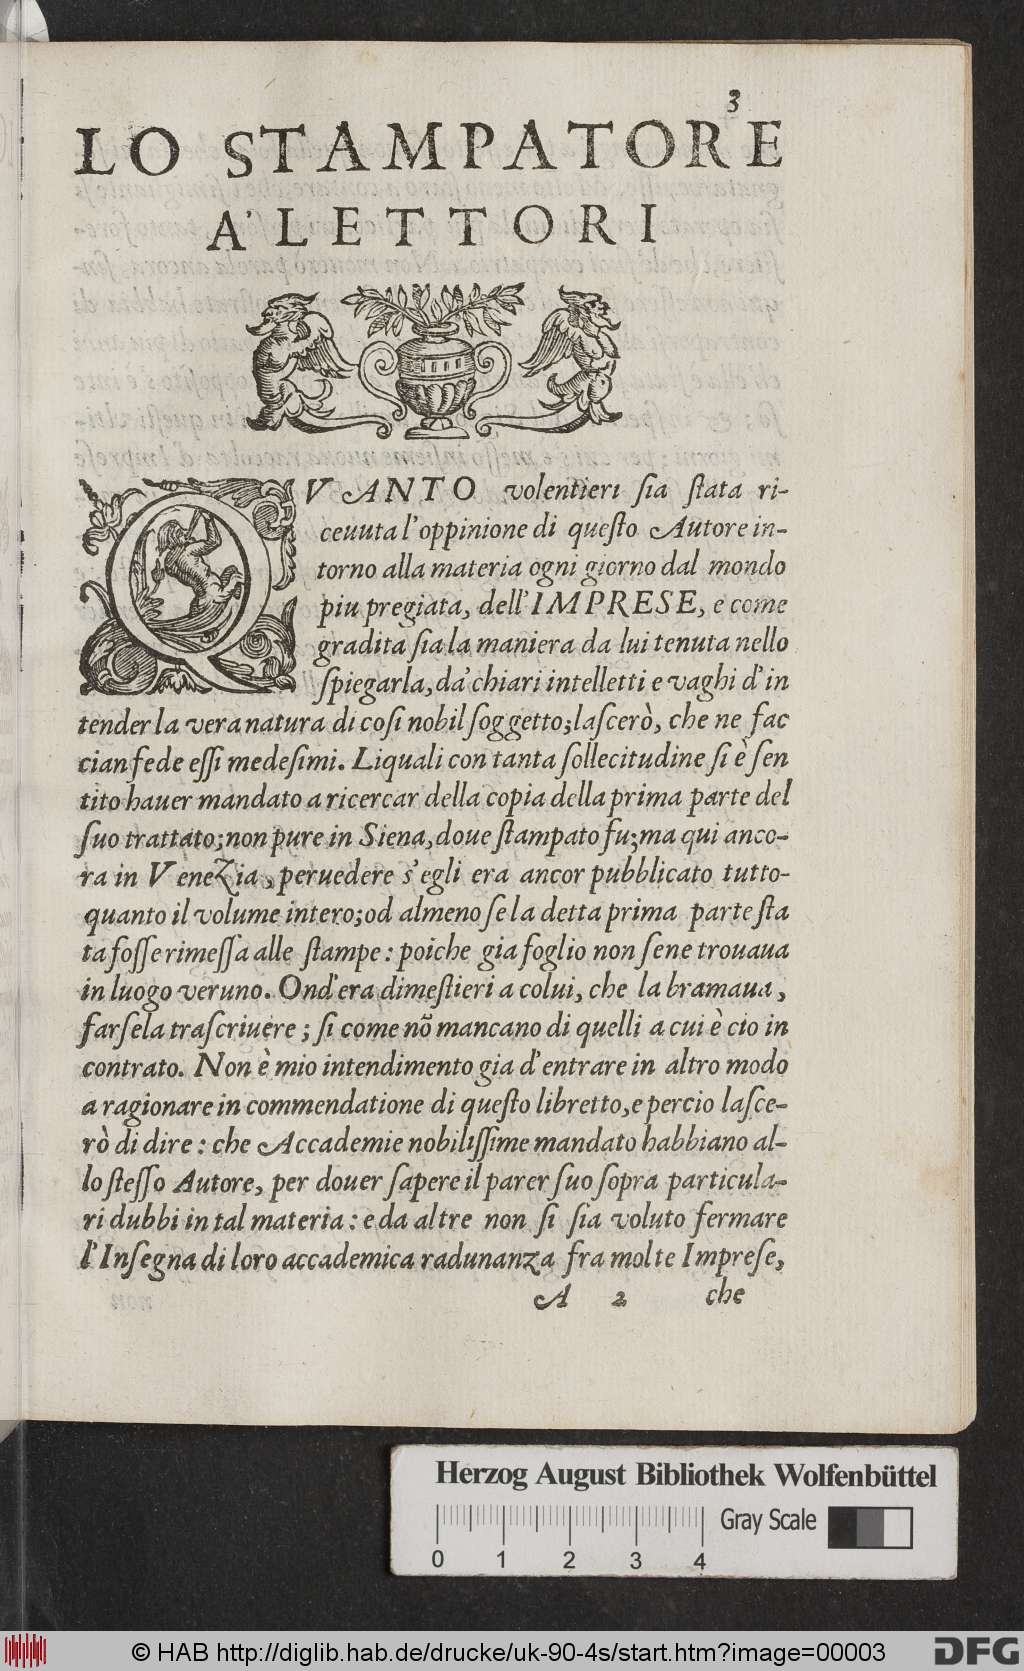 3
LO STAMPATORE
A' LETTORI
QVANTO volentieri ſia ſtata ri-
ceuuta l'oppinione di queſto Autore in-
torno alla materia ogni giorno dal mondo
piu pregiata, dell'IMPRESE, e come
gradita ſia la maniera da lui tenuta nello
ſpiegarla, da' chiari intelletti e vaghi d'in
tender la vera natura di coſi nobil ſoggetto; laſcerò, che ne fac
cian fede eſſi medeſimi. Liquali con tanta ſollecitudine ſi è ſen
tito hauer mandato a ricercar della copia della prima parte del
ſuo trattato; non pure in Siena, doue ſtampato fu; ma qui anco-
ra in Venezia, per uedere s'egli era ancor pubblicato tutto-
quanto il volume intero; od almeno ſe la detta prima parte ſta
ta foſſe rimeſſa alle ſtampe: poiche gia foglio non ſene trouaua
in luogo veruno. Ond'era dimeſtieri a colui, che la bramaua,
farſela traſcriuere; ſi come nõ mancano di quelli a cui è cio in
contrato. Non è mio intendimento gia d'entrare in altro modo
a ragionare in commendatione di queſto libretto, e percio laſce-
rò di dire: che Accademie nobiliſſime mandato habbiano al-
lo ſteſſo Autore, per douer ſapere il parer ſuo ſopra particula-
ri dubbi in tal materia: e da altre non ſi ſia voluto fermare
l'Inſegna di loro accademica radunanza fra molte Impreſe,
A 2 che
Herzog August Bibliothek Wolfenbüttel
Gray Scale
0 1 2 3 4
© HAB http://diglib.hab.de/drucke/uk-90-4s/start.htm?image=00003
DFG